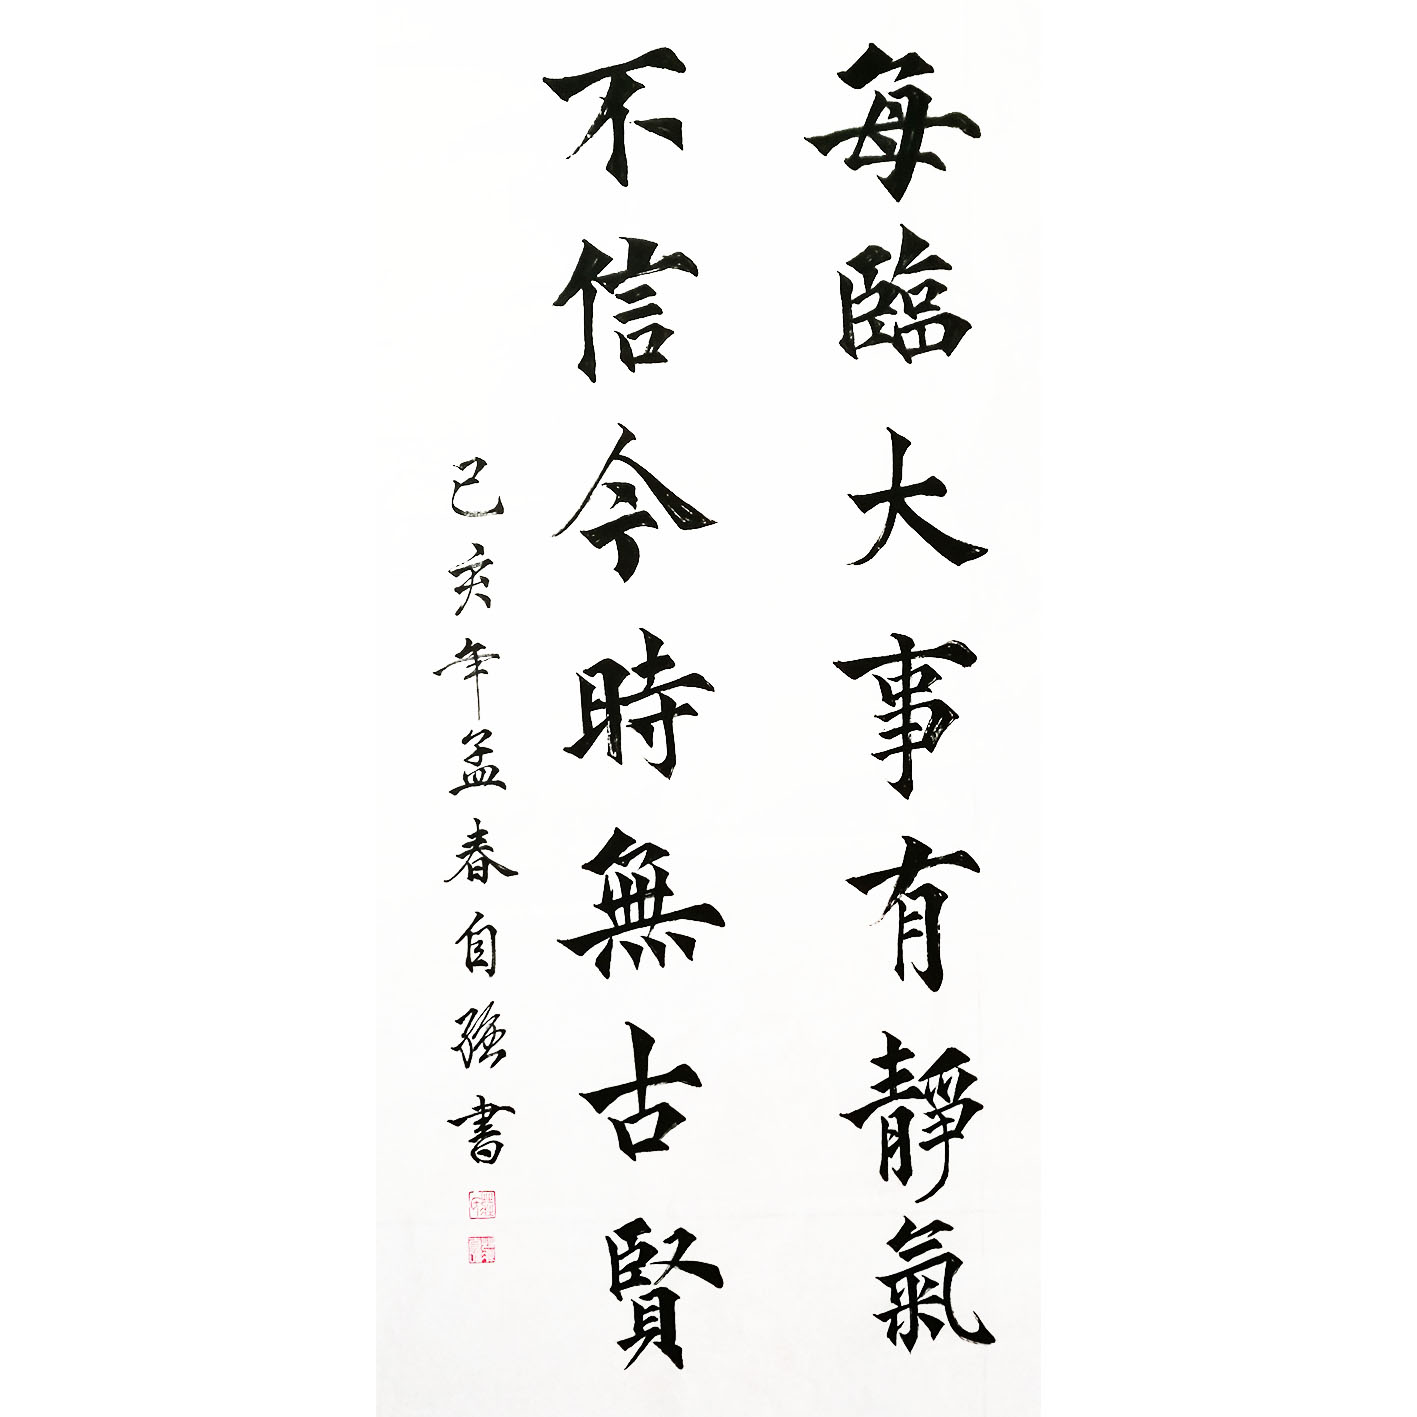 每臨大事有靜氣
不信今時無古賢
己亥年孟春自強書